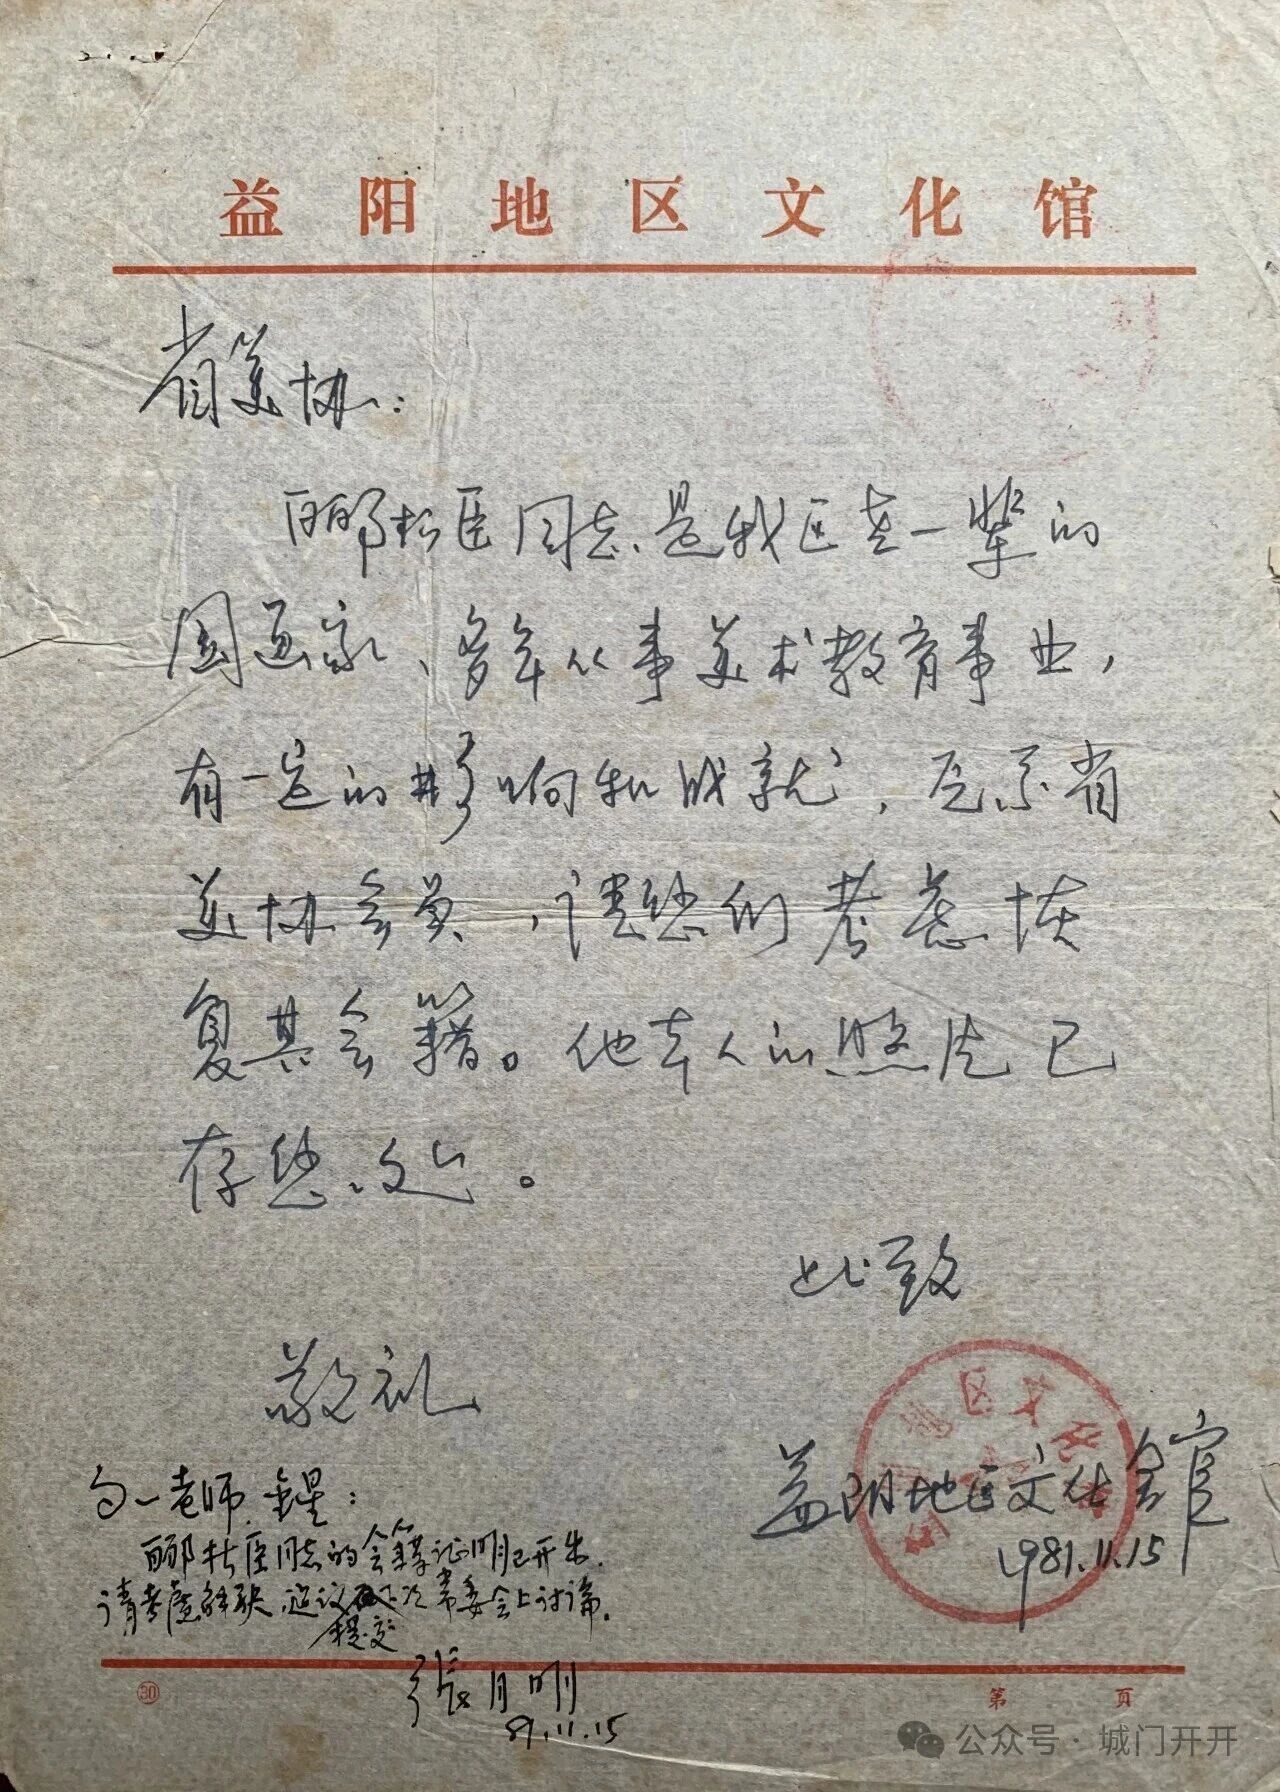 益阳地区文化馆
省美协：
郦松臣同志、是我区老一辈的
国画家、多年从事美术教育事业，
有一定的影响和成就，应系省
美协会员，请您们考虑恢
复其会籍。他本人的照片已
存您处。
此致
敬礼
益阳地区文化馆
1981.11.15
白一老师、金星：
郦松臣同志的会籍证明已开出、
请考虑解决，建议下次常委会上讨论。
提交
張月明
81.11.15
30
第 页
公众号·城门开开